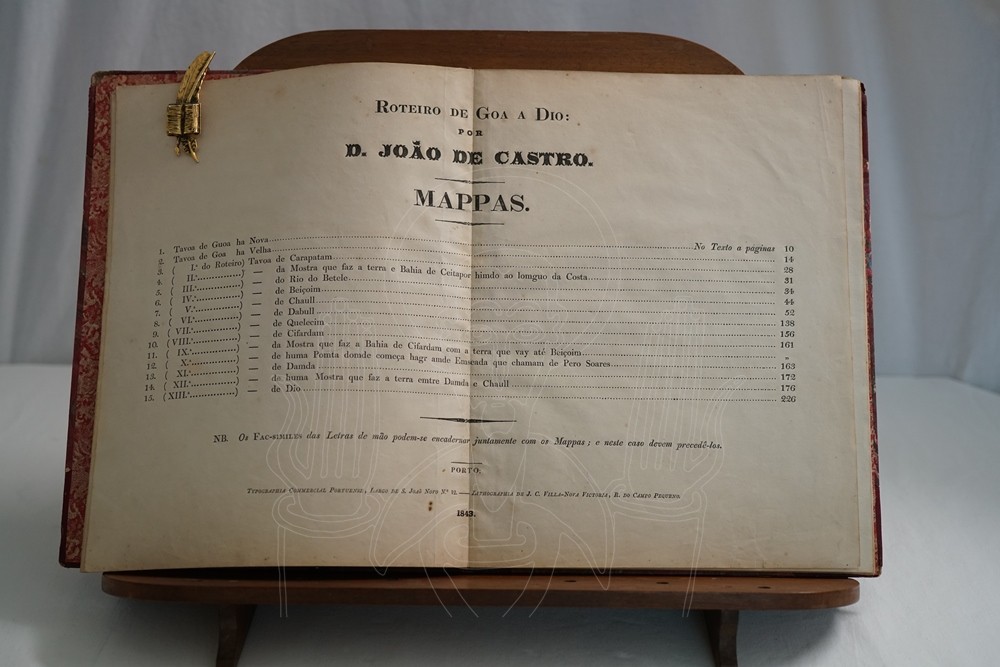 ROTEIRO DE GOA A DIO:
POR
D. JOÃO DE CASTRO.
MAPPAS.
1. Tavoa de Guoa ha Nova No Texto a páginas 10
2. Tavoa de Goa ha Velha 14
3. ( I.ª do Roteiro) Tavoa de Carapatam 28
4. ( II.ª ) — da Mostra que faz a terra e Bahia de Ceitapor himdo ao lomguo da Costa 31
5. ( III.ª ) — do Rio do Betele 34
6. ( IV.ª ) — de Beiçoim 44
7. ( V.ª ) — de Chaull 52
8. ( VI.ª ) — de Dabull 138
9. ( VII.ª ) — de Quelecim 156
10. (VIII.ª ) — de Cifardam 161
11. ( IX.ª ) — da Mostra que faz a Bahia de Cifardam com a terra que vay até Beiçoim „
12. ( X.ª ) — de huma Pomta domde começa hagramde Emseada que chamam de Pero Soares 163
13. ( XI.ª ) — de Damda 172
14. ( XII.ª ) — de huma Mostra que faz a terra emtre Damda e Chaull 176
15. (XIII.ª ) — de Dio 226
NB. Os FAC-SIMILES das Letras de mão podem-se encadernar juntamente com os Mappas; e neste caso devem precedê-los.
PORTO.
TYPOGRAPHIA COMMERCIAL PORTUENSE, LARGO DE S. JOÃO NOVO Nº 12. — LITHOGRAPHIA DE J. C. VILLA-NOVA VICTORIA, R. DO CAMPO PEQUENO.
1843.